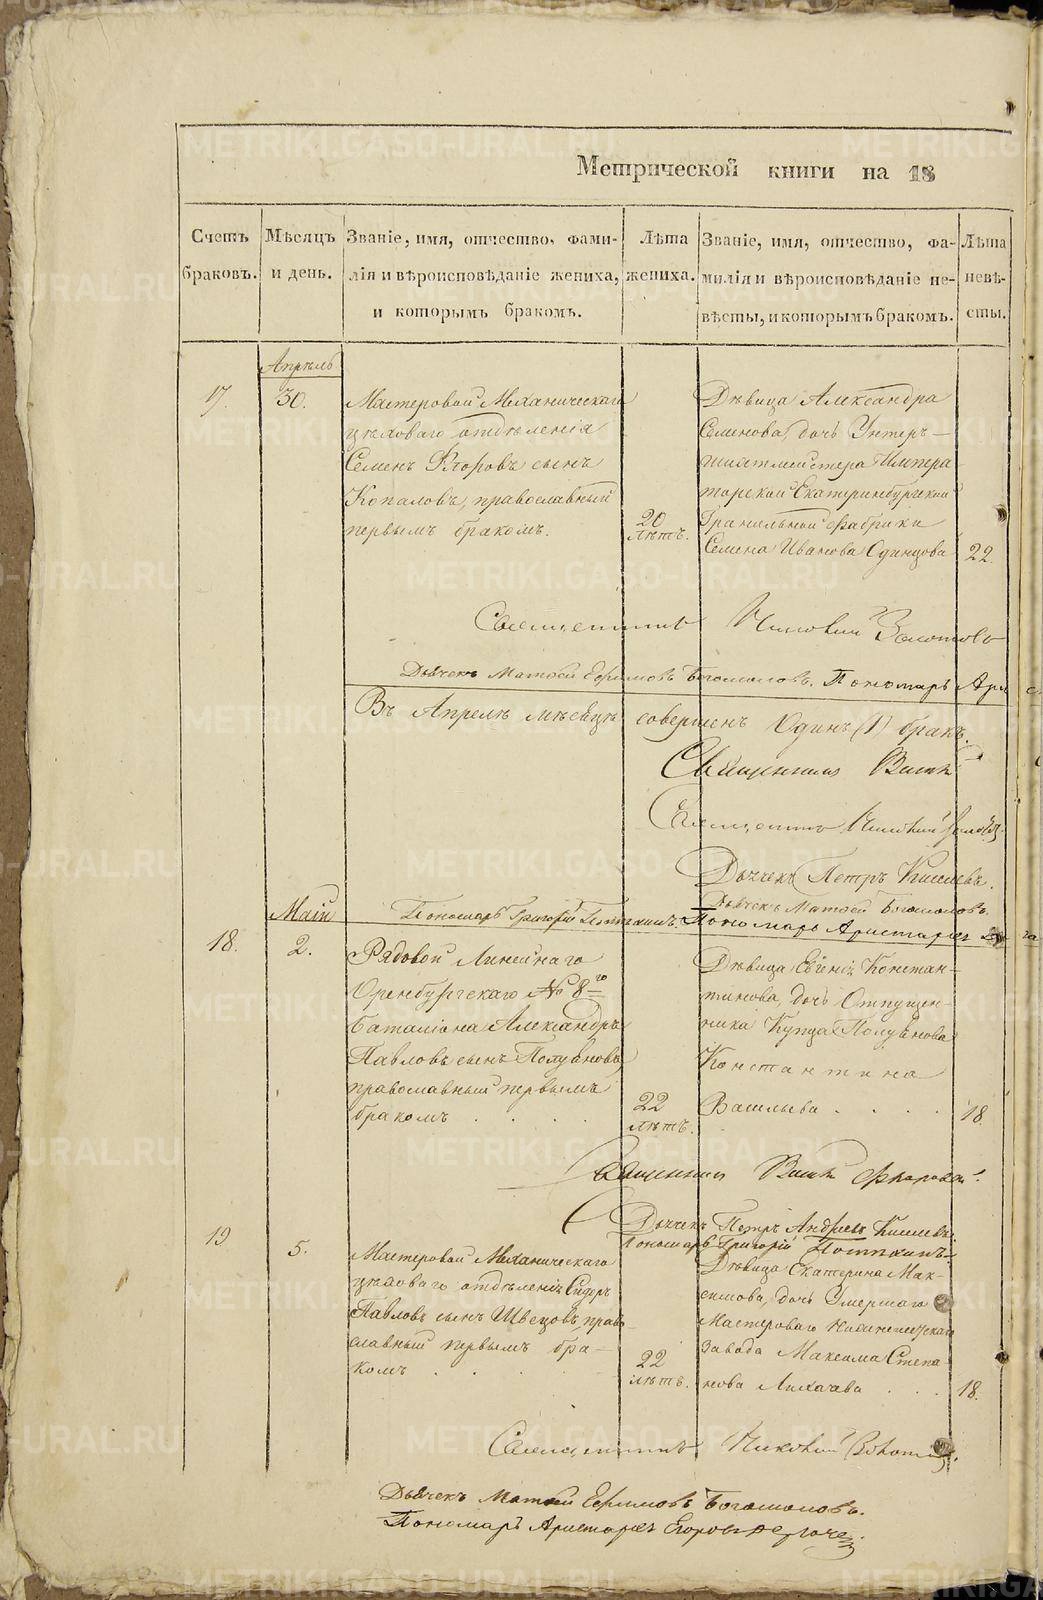 Метрической книги на 18
Счетъ браковъ.
Мѣсяцъ и день.
Званіе, имя, отчество, фами-
лія и вѣроисповѣданіе жениха,
и которымъ бракомъ.
Лѣта
жениха.
Званіе, имя, отчество, фа-
милія и вѣроисповѣданіе не-
вѣсты, и которымъ бракомъ.
Лѣта
невѣ-
сты.
Апрѣль
17.
30.
Мастеровой Механическаго
цѣховаго отдѣленія
Семенъ Егоровъ сынъ
Копаловъ, православный
первымъ бракомъ.
20
лѣтъ.
Дѣвица Александра
Семенова, дочь Унтеръ-
шихтмейстера Импера
торской Екатеринбургской
Гранильной фабрики
Семена Иванова Одинцова
22.
Священникъ
Дьячекъ Матвей Ефимовъ Богомоловъ. Пономарь Ари
Въ Апрелѣ мѣсяцѣ совершенъ Одинъ (1) бракъ.
Священникъ
Священникъ
Дьячекъ Петръ Киселевъ.
Дьячекъ Матвей Богомоловъ.
Пономарь Григорій Пономарь Аристархъ
Май
18.
2.
Рядовой Линейнаго
Оренбургскаго № 8го
баталіона Александръ
Павловъ сынъ Полуяновъ,
православный первымъ
бракомъ . . . .
22
лѣтъ.
Дѣвица Евгенія Констан-
тинова, дочь Отпущен-
ника Купца Полуянова
Константина
Васильева . . . .
18.
Священникъ
Дьячекъ Петръ Андреевъ Киселевъ.
Пономарь Григорій
19
5.
Мастеровой Механическаго
цѣховаго отдѣленія Сидоръ
Павловъ сынъ Швецовъ, право
славный первымъ бра-
комъ . . . .
22
лѣтъ.
Дѣвица Екатерина Мак-
симова, дочь Умершаго
Мастероваго
завода Максима Степа
нова Лихачева . . .
18.
Священникъ
Дьячекъ Матвей Ефимовъ Богомоловъ.
Пономарь Аристархъ Егоровъ
METRIKI.GASO-URAL.RU